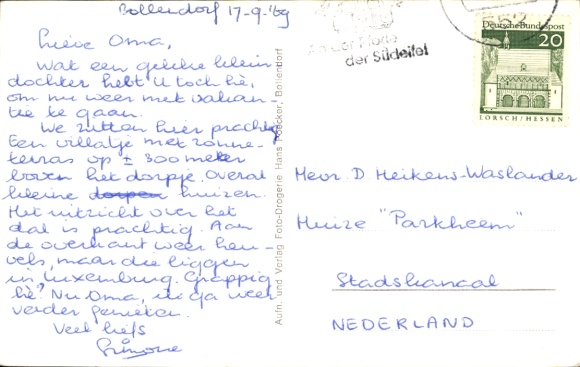 Bollendorf 17-9-'69
Lieve Oma,
Wat een gekke klein
dochter hebt U toch hè,
om nu weer met vakan-
tie te gaan.
We zitten hier prachtig
Een villatje met zonne-
terras op ± 300 meter
boven het dorpje. Overal
kleine dorpen huizen.
Het uitzicht over het
dal is prachtig. Aan
de overkant weer heu-
vels, maar die liggen
in Luxemburg. Grappig
hè? Nu Oma, ik ga weer
verder genieten.
Veel liefs
Simone
Aufn. und Verlag Foto-Drogerie Hans Boecker, Bollendorf
an der Pforte
der Südeifel
52
Deutsche Bundespost
20
LORSCH/HESSEN
Mevr D Heikens-Waslander
Huize "Parkheem"
Stadskanaal
NEDERLAND